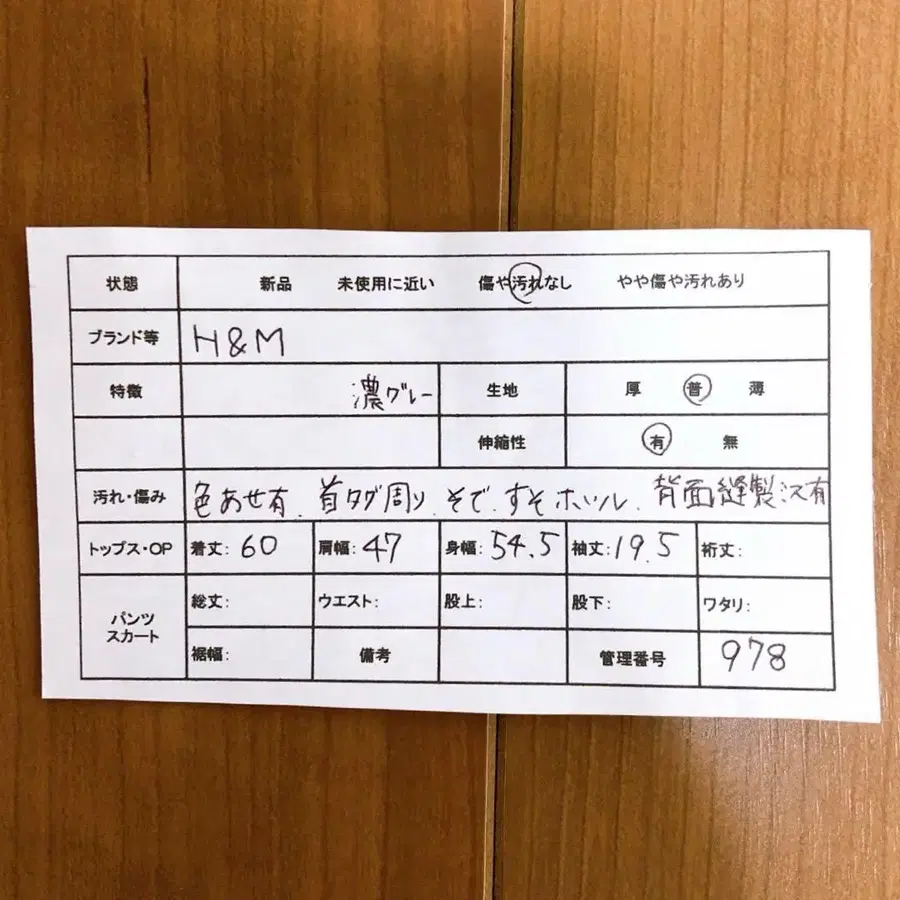 状態 新品 未使用に近い 傷や汚れなし やや傷や汚れあり
ブランド等 H&M
特徴 濃グレー 生地 厚 普 薄
伸縮性 有 無
汚れ・傷み 色あせ有、首タグ周り、そで、すそホール、背面縫製 有
トップス・OP 着丈: 60 肩幅: 47 身幅: 54.5 袖丈: 19.5 裄丈:
パンツ スカート 総丈: ウエスト: 股上: 股下: ワタリ:
裾幅: 備考 管理番号 978